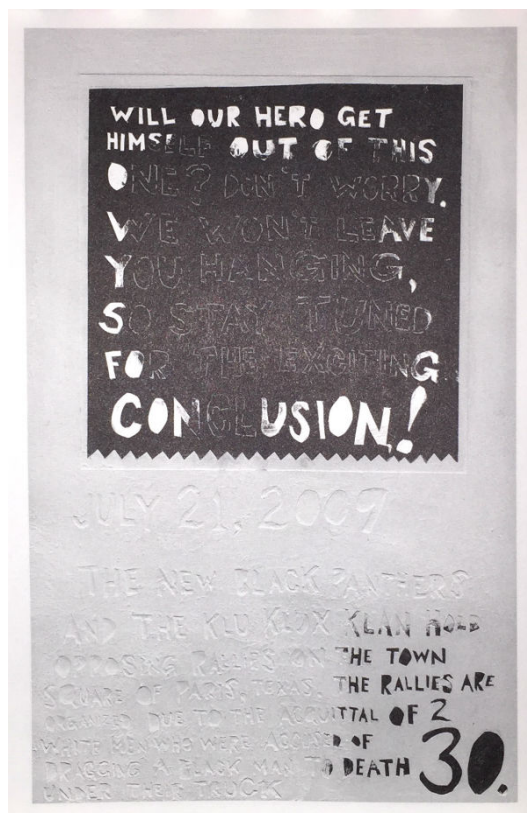 WILL OUR HERO GET
HIMSELF OUT OF THIS
ONE? DON'T WORRY.
WE WON'T LEAVE
YOU HANGING,
SO STAY TUNED
FOR THE EXCITING
CONCLUSION!
JULY 21, 2009
THE NEW BLACK PANTHERS
AND THE KLU KLOX KLAN HOLD
OPPOSING RALLIES ON THE TOWN
SQUARE OF PARIS, TEXAS. THE RALLIES ARE
ORGANIZED DUE TO THE ACQUITTAL OF 2
WHITE MEN WHO WERE ACCUSED OF
DRAGGING A BLACK MAN TO DEATH
UNDER THEIR TRUCK
30.